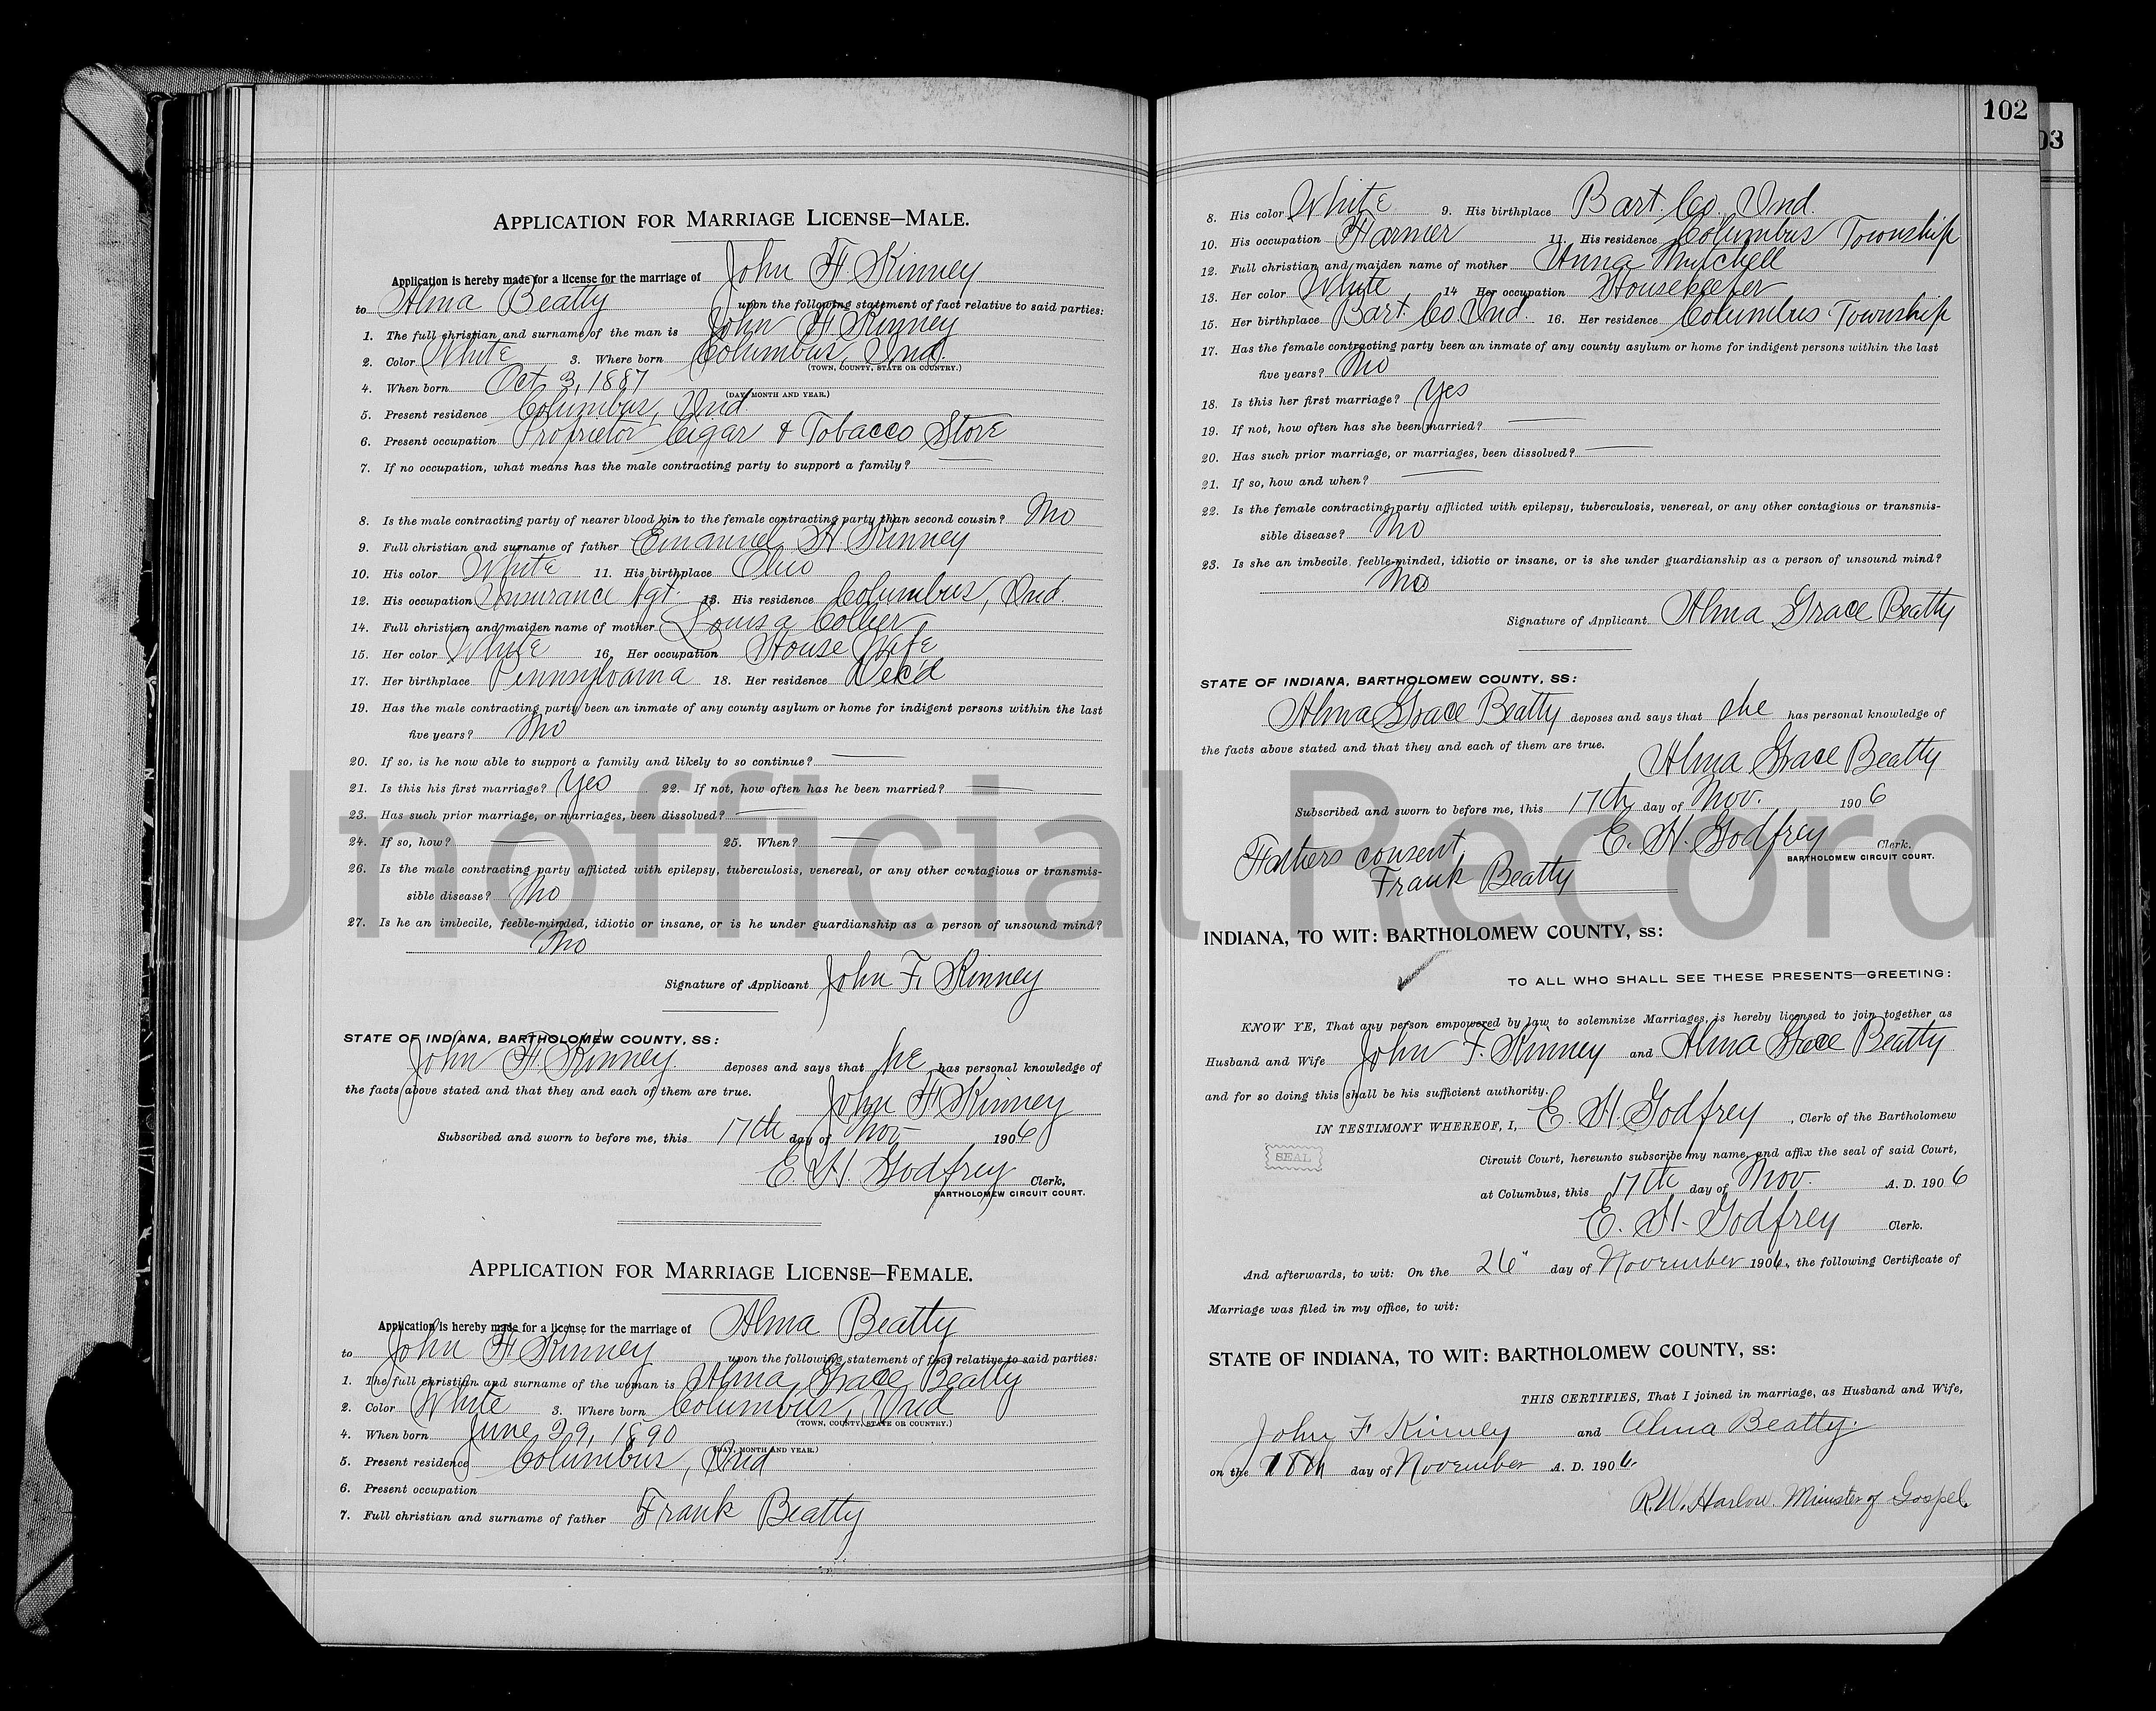 APPLICATION FOR MARRIAGE LICENSE—MALE.
Application is hereby made for a license for the marriage of John F. Kinney
to Alma Beatty upon the following statement of fact relative to said parties:
1. The full christian and surname of the man is John F. Kinney
2. Color White 3. Where born Columbus, Ind.
(TOWN, COUNTY, STATE OR COUNTRY.)
4. When born Oct 3, 1887
(DAY, MONTH AND YEAR.)
5. Present residence Columbus, Ind.
6. Present occupation Proprietor Cigar & Tobacco Store
7. If no occupation, what means has the male contracting party to support a family? —
8. Is the male contracting party of nearer blood kin to the female contracting party than second cousin? No
9. Full christian and surname of father Emanuel H. Kinney
10. His color White 11. His birthplace Ohio
12. His occupation Insurance Agt. 13. His residence Columbus, Ind.
14. Full christian and maiden name of mother Louisa Collier
15. Her color White 16. Her occupation House Wife
17. Her birthplace Pennsylvania 18. Her residence Dec'd
19. Has the male contracting party been an inmate of any county asylum or home for indigent persons within the last
five years? No
20. If so, is he now able to support a family and likely to so continue? —
21. Is this his first marriage? Yes 22. If not, how often has he been married? —
23. Has such prior marriage, or marriages, been dissolved? —
24. If so, how? — 25. When? —
26. Is the male contracting party afflicted with epilepsy, tuberculosis, venereal, or any other contagious or transmis-
sible disease? No
27. Is he an imbecile, feeble-minded, idiotic or insane, or is he under guardianship as a person of unsound mind?
No
Signature of Applicant John F. Kinney
STATE OF INDIANA, BARTHOLOMEW COUNTY, SS:
John F. Kinney deposes and says that he has personal knowledge of
the facts above stated and that they and each of them are true.
John F. Kinney
Subscribed and sworn to before me, this 17th day of Nov 1906
E. H. Godfrey Clerk,
BARTHOLOMEW CIRCUIT COURT.
APPLICATION FOR MARRIAGE LICENSE—FEMALE.
Application is hereby made for a license for the marriage of Alma Beatty
to John F. Kinney upon the following statement of fact relative to said parties:
1. The full christian and surname of the woman is Alma Grace Beatty
2. Color White 3. Where born Columbus, Ind
(TOWN, COUNTY, STATE OR COUNTRY.)
4. When born June 29, 1890
(DAY, MONTH AND YEAR.)
5. Present residence Columbus, Ind
6. Present occupation
7. Full christian and surname of father Frank Beatty
102
03
8. His color White 9. His birthplace Bart. Co. Ind.
10. His occupation Farmer 11. His residence Columbus Township
12. Full christian and maiden name of mother Anna Mitchell
13. Her color White 14 Her occupation Housekeeper
15. Her birthplace Bart. Co Ind. 16. Her residence Columbus Township
17. Has the female contracting party been an inmate of any county asylum or home for indigent persons within the last
five years? No
18. Is this her first marriage? Yes
19. If not, how often has she been married? —
20. Has such prior marriage, or marriages, been dissolved? —
21. If so, how and when? —
22. Is the female contracting party afflicted with epilepsy, tuberculosis, venereal, or any other contagious or transmis-
sible disease? No
23. Is she an imbecile, feeble-minded, idiotic or insane, or is she under guardianship as a person of unsound mind?
No
Signature of Applicant Alma Grace Beatty
STATE OF INDIANA, BARTHOLOMEW COUNTY, SS:
Alma Grace Beatty deposes and says that she has personal knowledge of
the facts above stated and that they and each of them are true.
Alma Grace Beatty
Subscribed and sworn to before me, this 17th day of Nov. 1906
E. H. Godfrey Clerk.
BARTHOLOMEW CIRCUIT COURT.
Fathers consent
Frank Beatty
INDIANA, TO WIT: BARTHOLOMEW COUNTY, SS:
TO ALL WHO SHALL SEE THESE PRESENTS—GREETING:
KNOW YE, That any person empowered by law to solemnize Marriages, is hereby licensed to join together as
Husband and Wife John F. Kinney and Alma Grace Beatty
and for so doing this shall be his sufficient authority.
IN TESTIMONY WHEREOF, I, E. H. Godfrey, Clerk of the Bartholomew
SEAL
Circuit Court, hereunto subscribe my name, and affix the seal of said Court,
at Columbus, this 17th day of Nov. A. D. 1906
E. H. Godfrey Clerk.
And afterwards, to wit: On the 26" day of November 1906, the following Certificate of
Marriage was filed in my office, to wit:
STATE OF INDIANA, TO WIT: BARTHOLOMEW COUNTY, SS:
THIS CERTIFIES, That I joined in marriage, as Husband and Wife,
John F Kinney and Alma Beatty.
on the 18th day of November A. D. 1906
R.W. Harlow. Minister of Gospel.
Unofficial Record